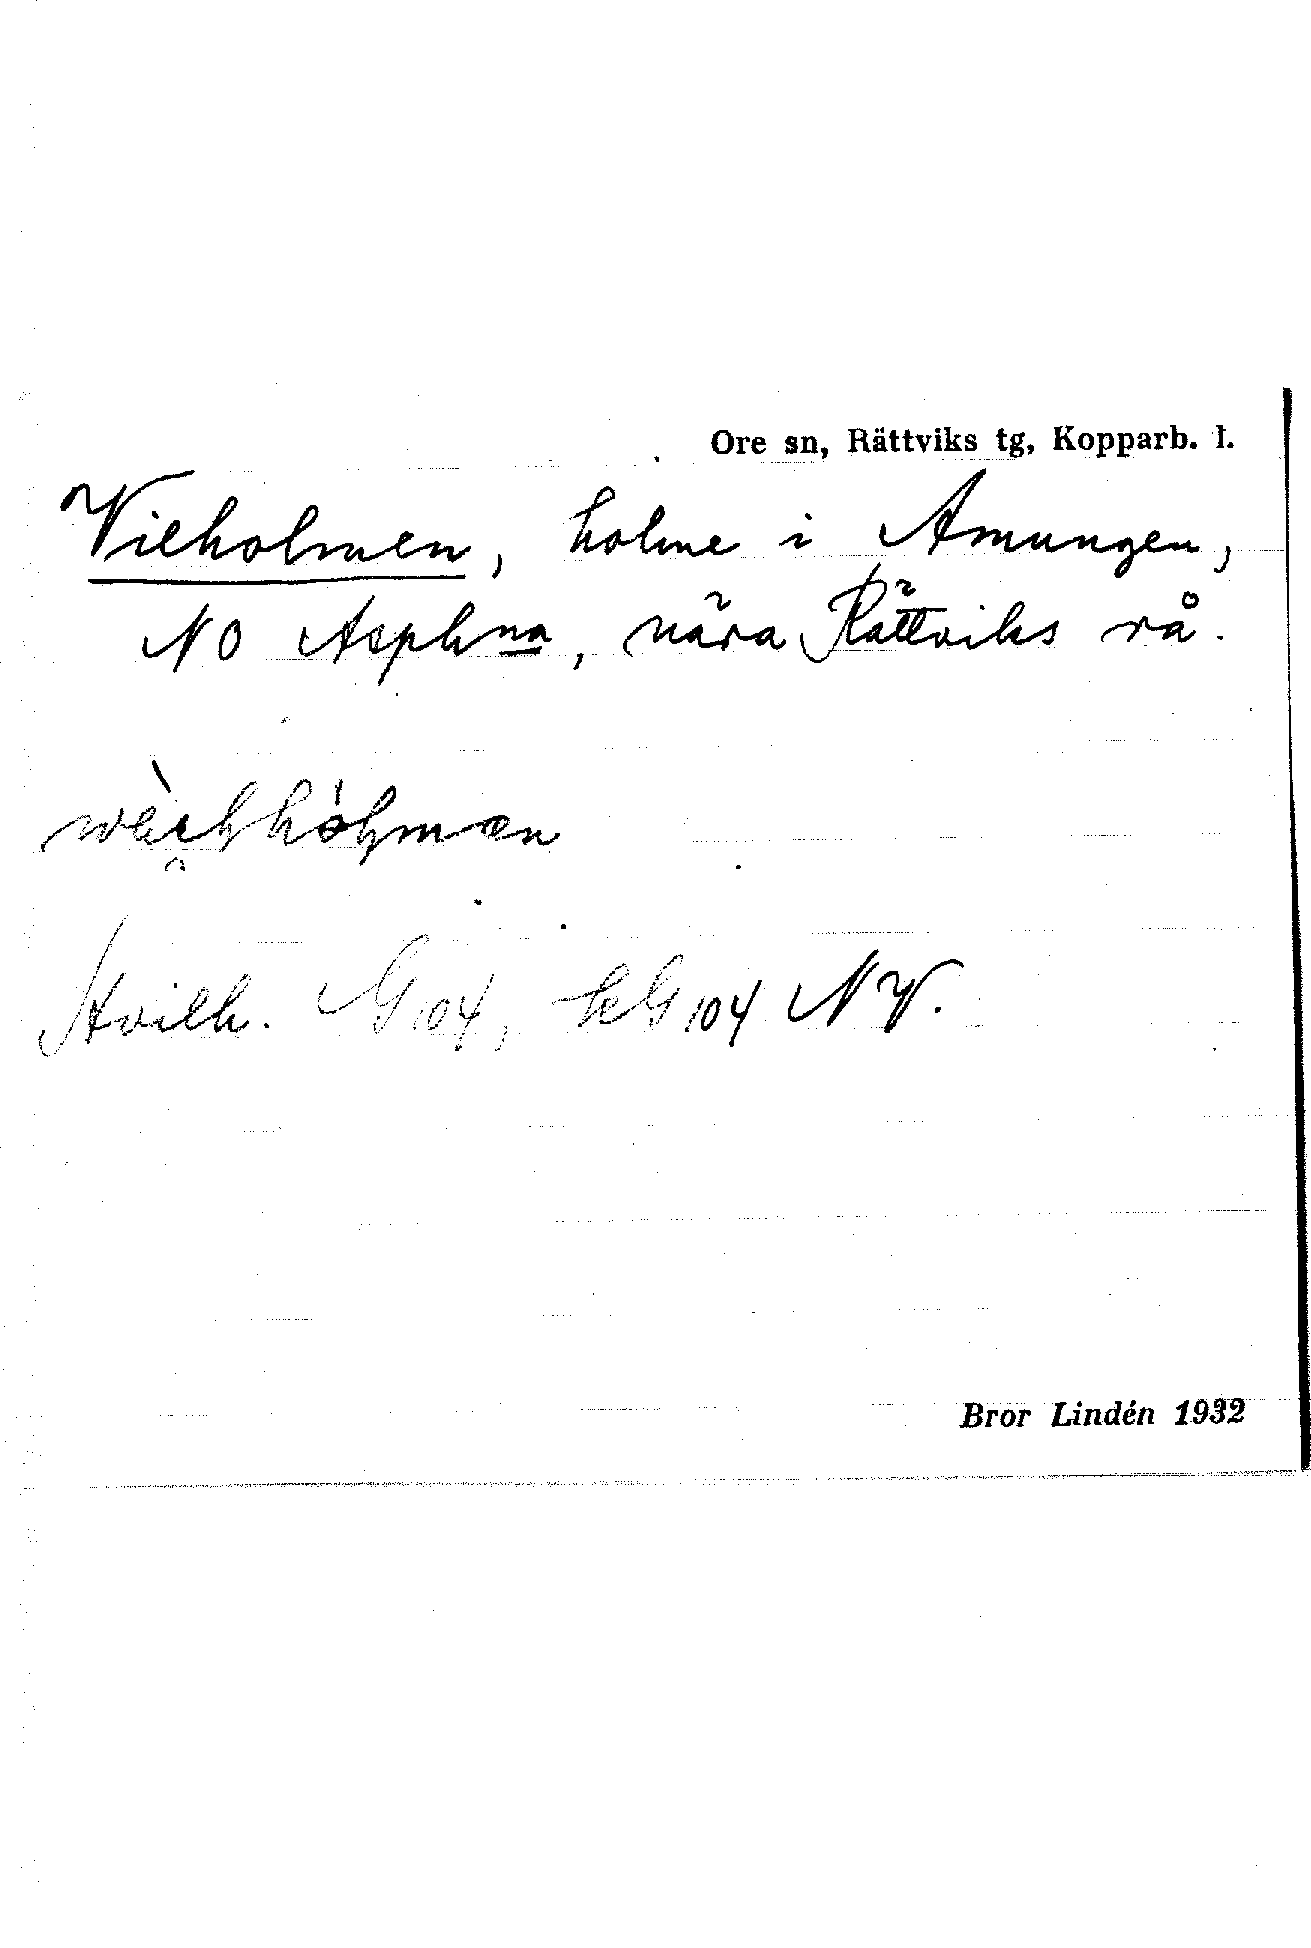 Ore sn, Rättviks tg, Kopparb. l.
Vilholmen, holme i Amungen,
NO Asphna, nära Rättviks rå.
Hvilh. G 104, kG 104 NV.
Bror Lindén 1932